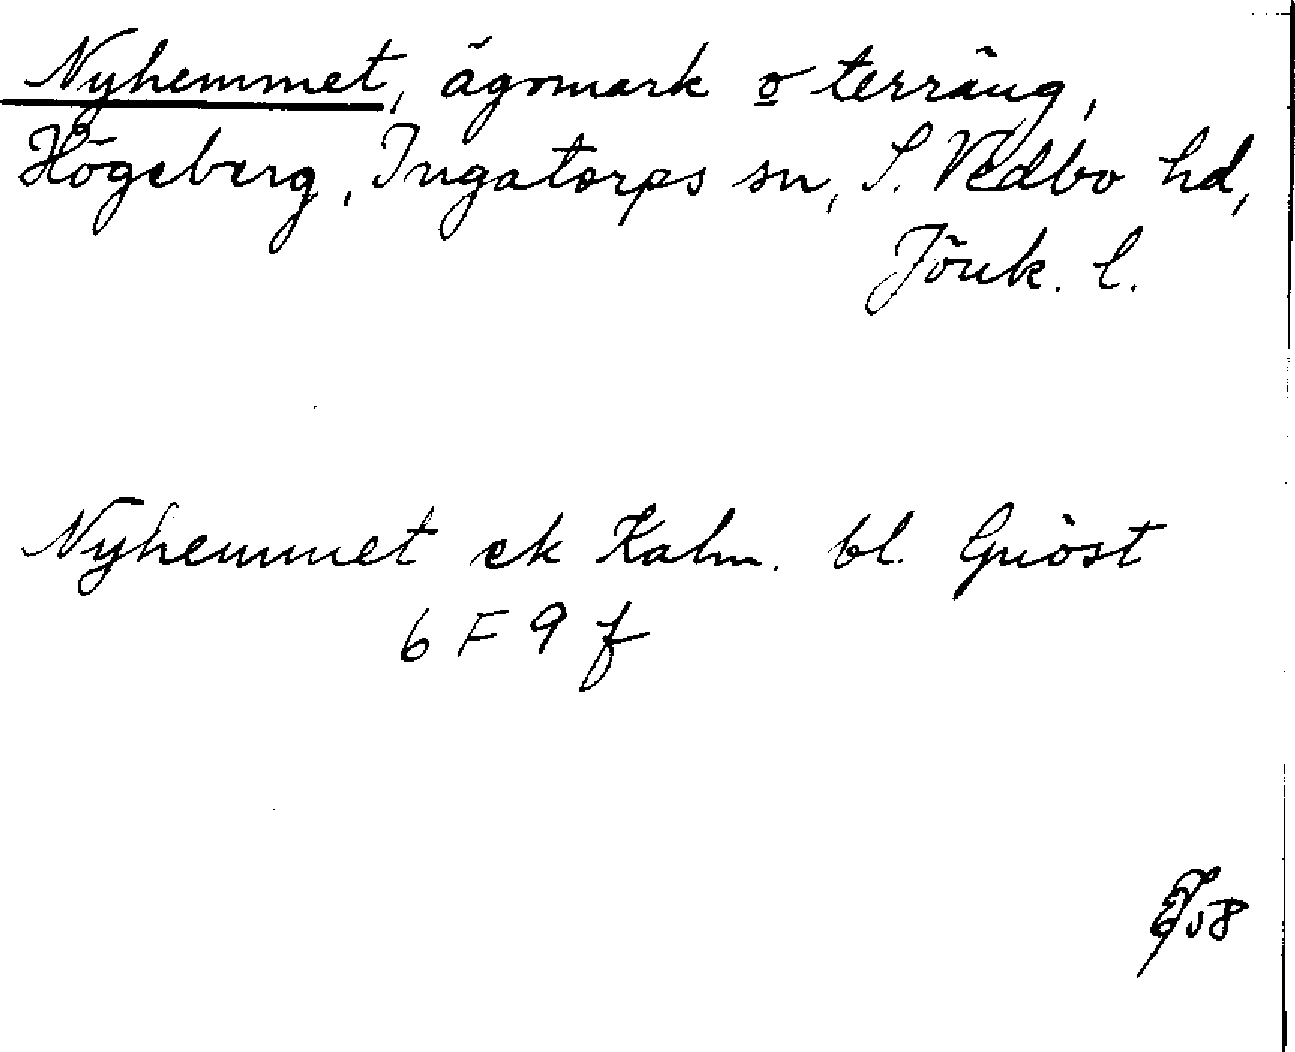 Nyhemmet, ägomark o terräng,
Högeberg, Ingatorps sn, S. Vedbo hd,
Jönk. l.
Nyhemmet ek Kalm. bl.
6 F 9 f
58